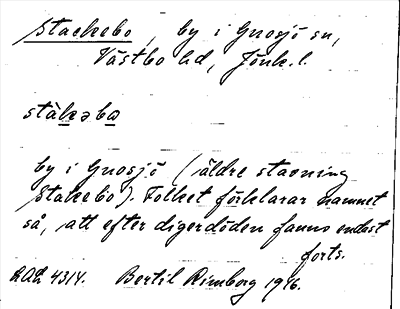 Stackebo, by i Gnosjö sn,
Västbo hd, Jönk. l.
stàkəba
by i Gnosjö (äldre stavning
Stakebo). Folket förklarar namnet
så, att efter digerdöden fanns endast
forts.
4314. Bertil Rimborg 1946.